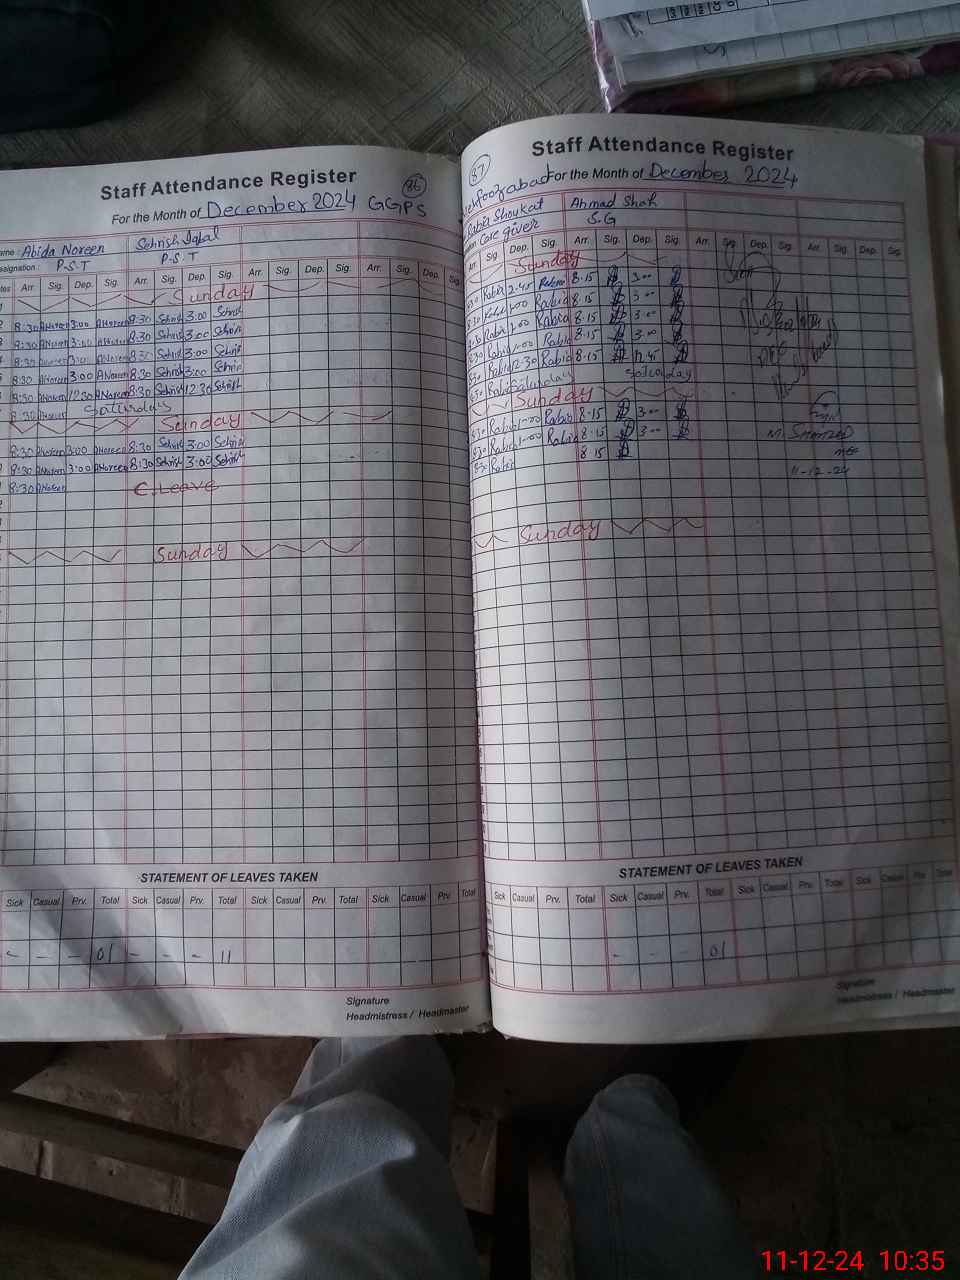 Staff Attendance Register
86
For the Month of December 2024 GGPS
Name: Abida Noreen Sehrish Iqbal
Designation P.S.T P.S.T
Arr. Sig. Dep. Sig. Arr. Sig. Dep. Sig. Arr. Sig. Dep. Sig. Arr. Sig. Dep. Sig.
Sunday
8:30 ANoreen 3:00 ANoreen 8:30 Sehrish 3:00 Sehrish
8:30 ANoreen 3:00 ANoreen 8:30 Sehrish 3:00 Sehrish
8:30 ANoreen 3:00 ANoreen 8:30 Sehrish 3:00 Sehrish
8:30 ANoreen 3:00 ANoreen 8:30 Sehrish 3:00 Sehrish
8:30 ANoreen 12:30 ANoreen 8:30 Sehrish 12:30 Sehrish
8:30 ANoreen Saturday
Sunday
8:30 ANoreen 3:00 ANoreen 8:30 Sehrish 3:00 Sehrish
8:30 ANoreen 3:00 ANoreen 8:30 Sehrish 3:00 Sehrish
8:30 ANoreen C.Leave
Sunday
STATEMENT OF LEAVES TAKEN
Sick Casual Prv. Total Sick Casual Prv. Total Sick Casual Prv. Total Sick Casual Prv. Total
- - - 01 - - - 11
Signature
Headmistress / Headmaster
Staff Attendance Register
87
For the Month of December 2024
Rabia Shoukat Ahmad Shah
Care giver S.G
Arr. Sig. Dep. Sig. Arr. Sig. Dep. Sig. Arr. Sig. Dep. Sig. Arr. Sig. Dep. Sig.
Sunday
8:30 Rabia 2:45 Rabia 8.15 3:00
8:30 Rabia 1:00 Rabia 8.15 3:00
8:30 Rabia 1:00 Rabia 8.15 3:00
8:30 Rabia 1:00 Rabia 8.15 3:00
8:30 Rabia 12:30 Rabia 8.15 12.45
8:30 Rabia Saturday Saturday
Sunday
8:30 Rabia 1:00 Rabia 8.15 3:00
8:30 Rabia 1:00 Rabia 8.15 3:00
8:30 Rabia 8.15
11-12-24
Sunday
STATEMENT OF LEAVES TAKEN
Sick Casual Prv. Total Sick Casual Prv. Total Sick Casual Prv. Total Sick Casual Prv. Total
- - - 01
Signature
Headmistress / Headmaster
11-12-24 10:35